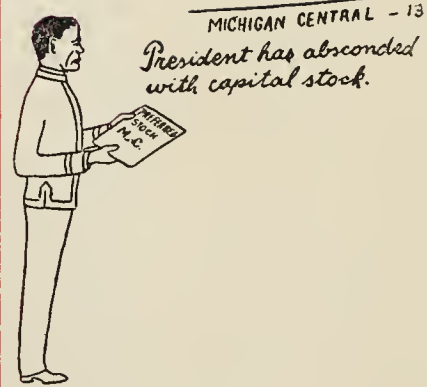 MICHIGAN CENTRAL - 13
President has absconded
with capital stock.
PREFERRED
STOCK
M.C.